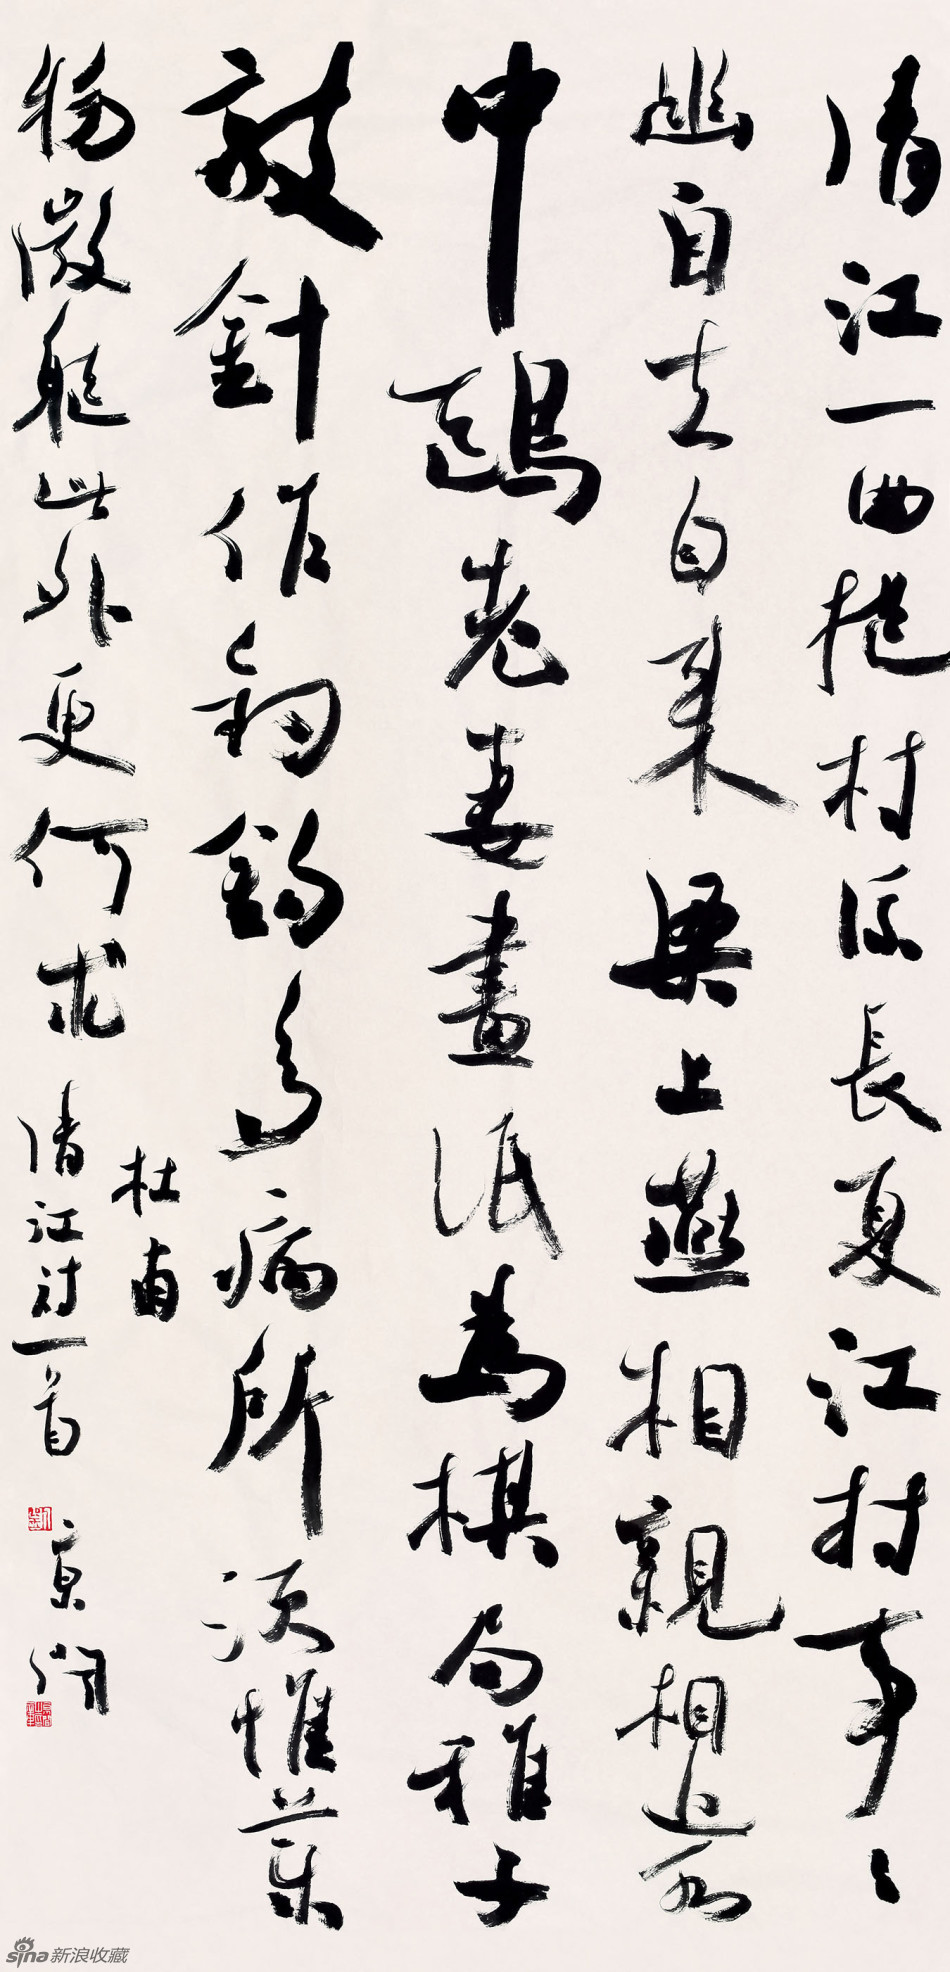 清江一曲抱村流長夏江村事〻
幽自去自来梁上燕相親相近水
中鷗老妻畫紙為棋局稚子
敲針作釣鈎多病所須惟藥
物微躯此外更何求
杜甫
清江詩一首
sina新浪收藏